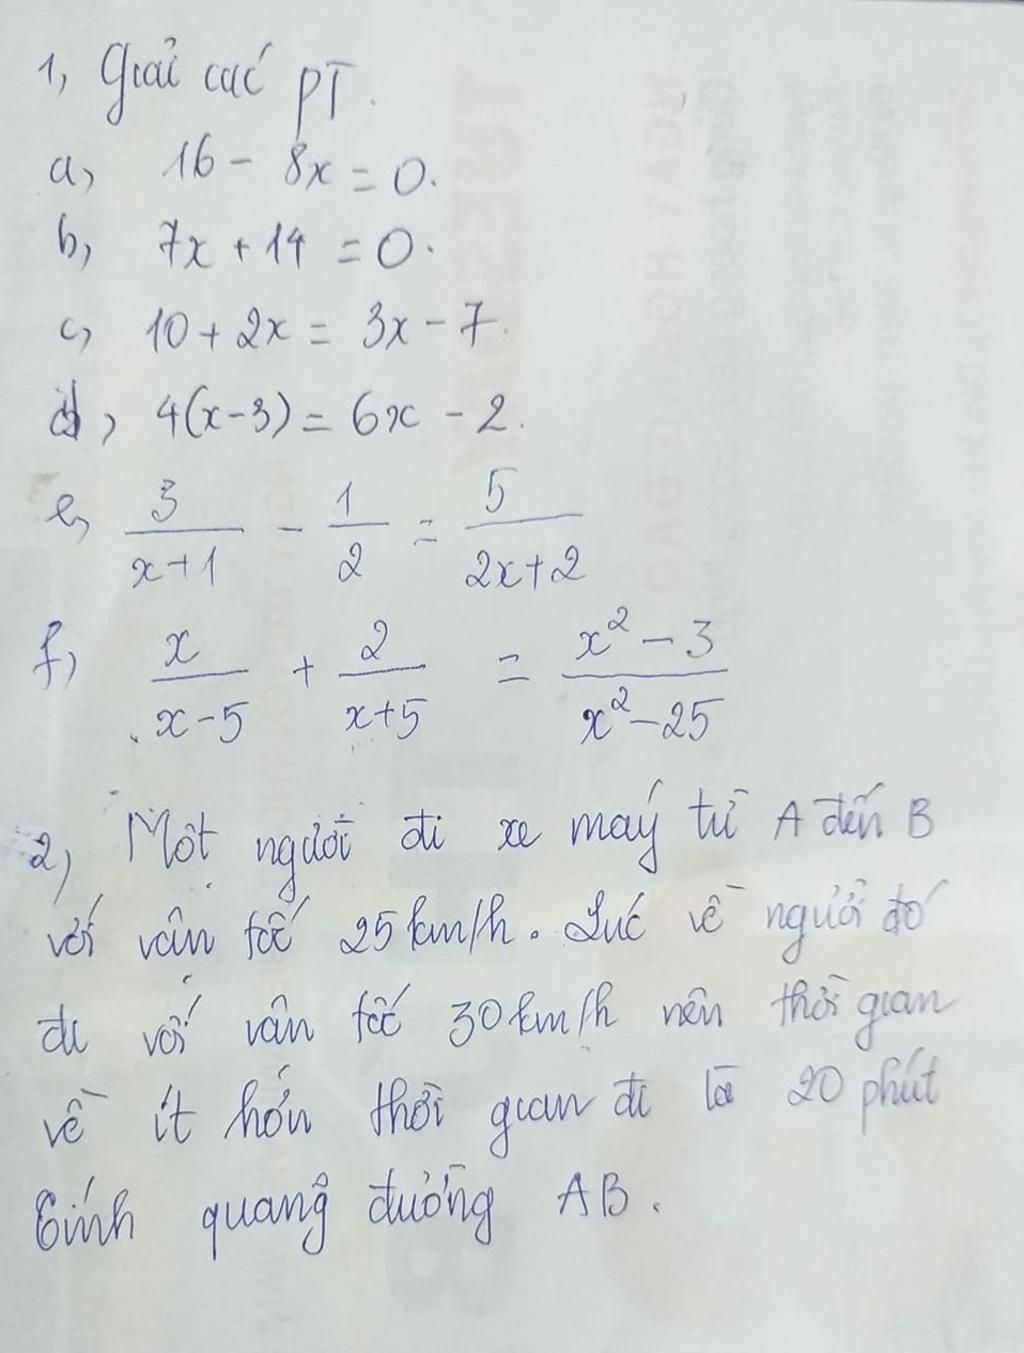 1, Giải các PT.
a, 16 - 8x = 0.
b, 7x + 14 = 0.
c, 10 + 2x = 3x - 7.
d, 4(x-3) = 6x - 2.
e, 3/(x+1) - 1/2 = 5/(2x+2)
f, x/(x-5) + 2/(x+5) = (x² - 3)/(x² - 25)
2, Một người đi xe máy từ A đến B
với vận tốc 25 km/h. Lúc về người đó
đi với vận tốc 30 km/h nên thời gian
về ít hơn thời gian đi là 20 phút
Tính quãng đường AB.